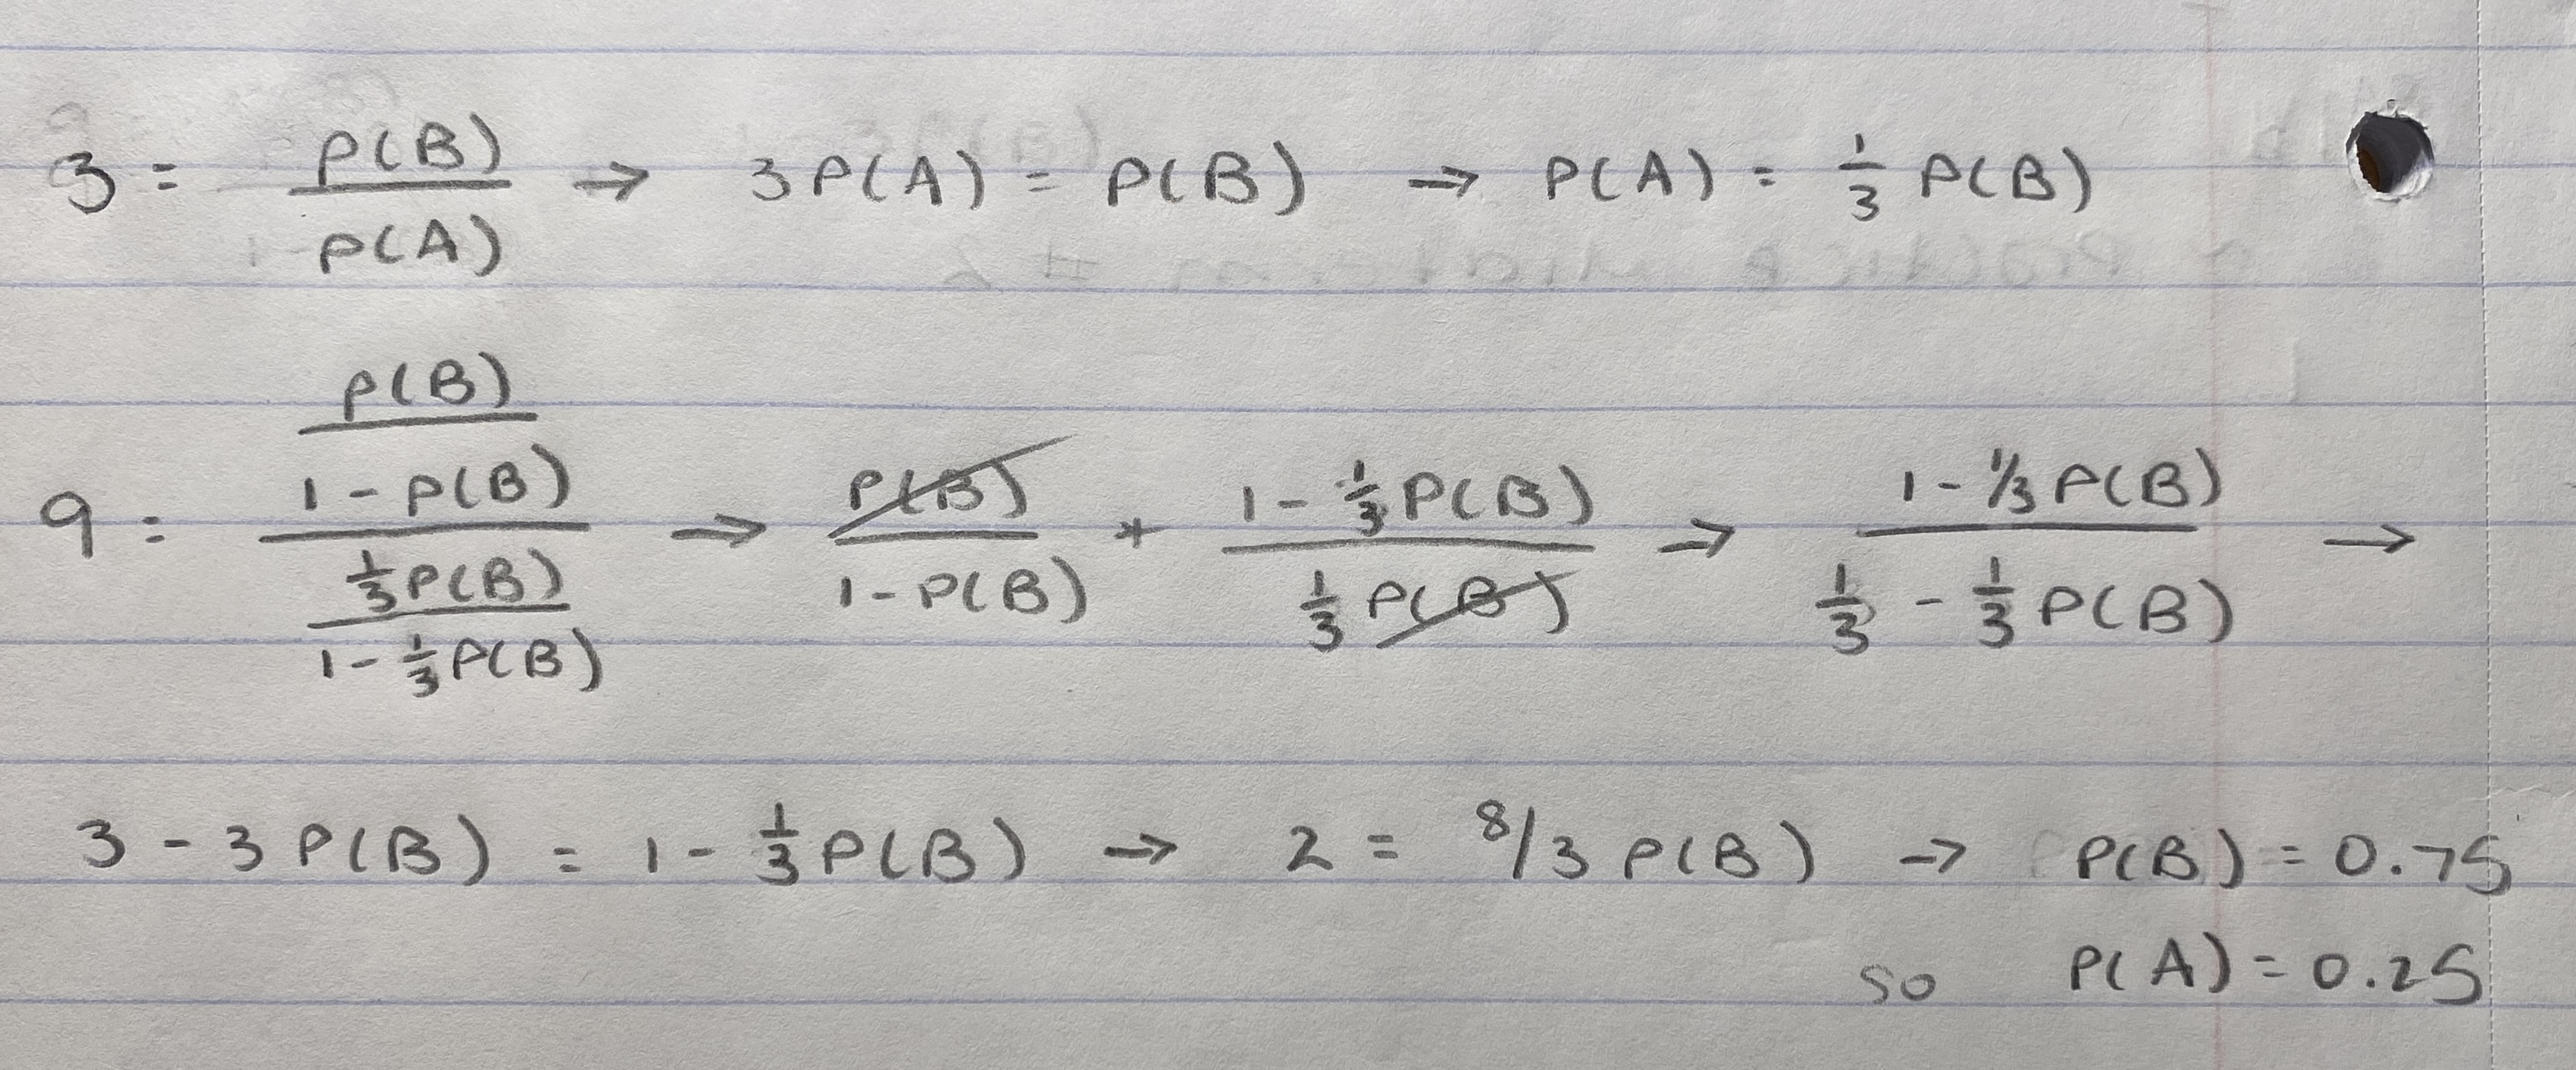 3 = P(B)/P(A) → 3P(A) = P(B) → P(A) = 1/3 P(B)
9 = (P(B)/(1 - P(B)))/(1/3 P(B)/(1 - 1/3 P(B))) → P(B)/(1 - P(B)) * (1 - 1/3 P(B))/(1/3 P(B)) → (1 - 1/3 P(B))/(1/3 - 1/3 P(B)) →
3 - 3P(B) = 1 - 1/3 P(B) → 2 = 8/3 P(B) → P(B) = 0.75
so P(A) = 0.25